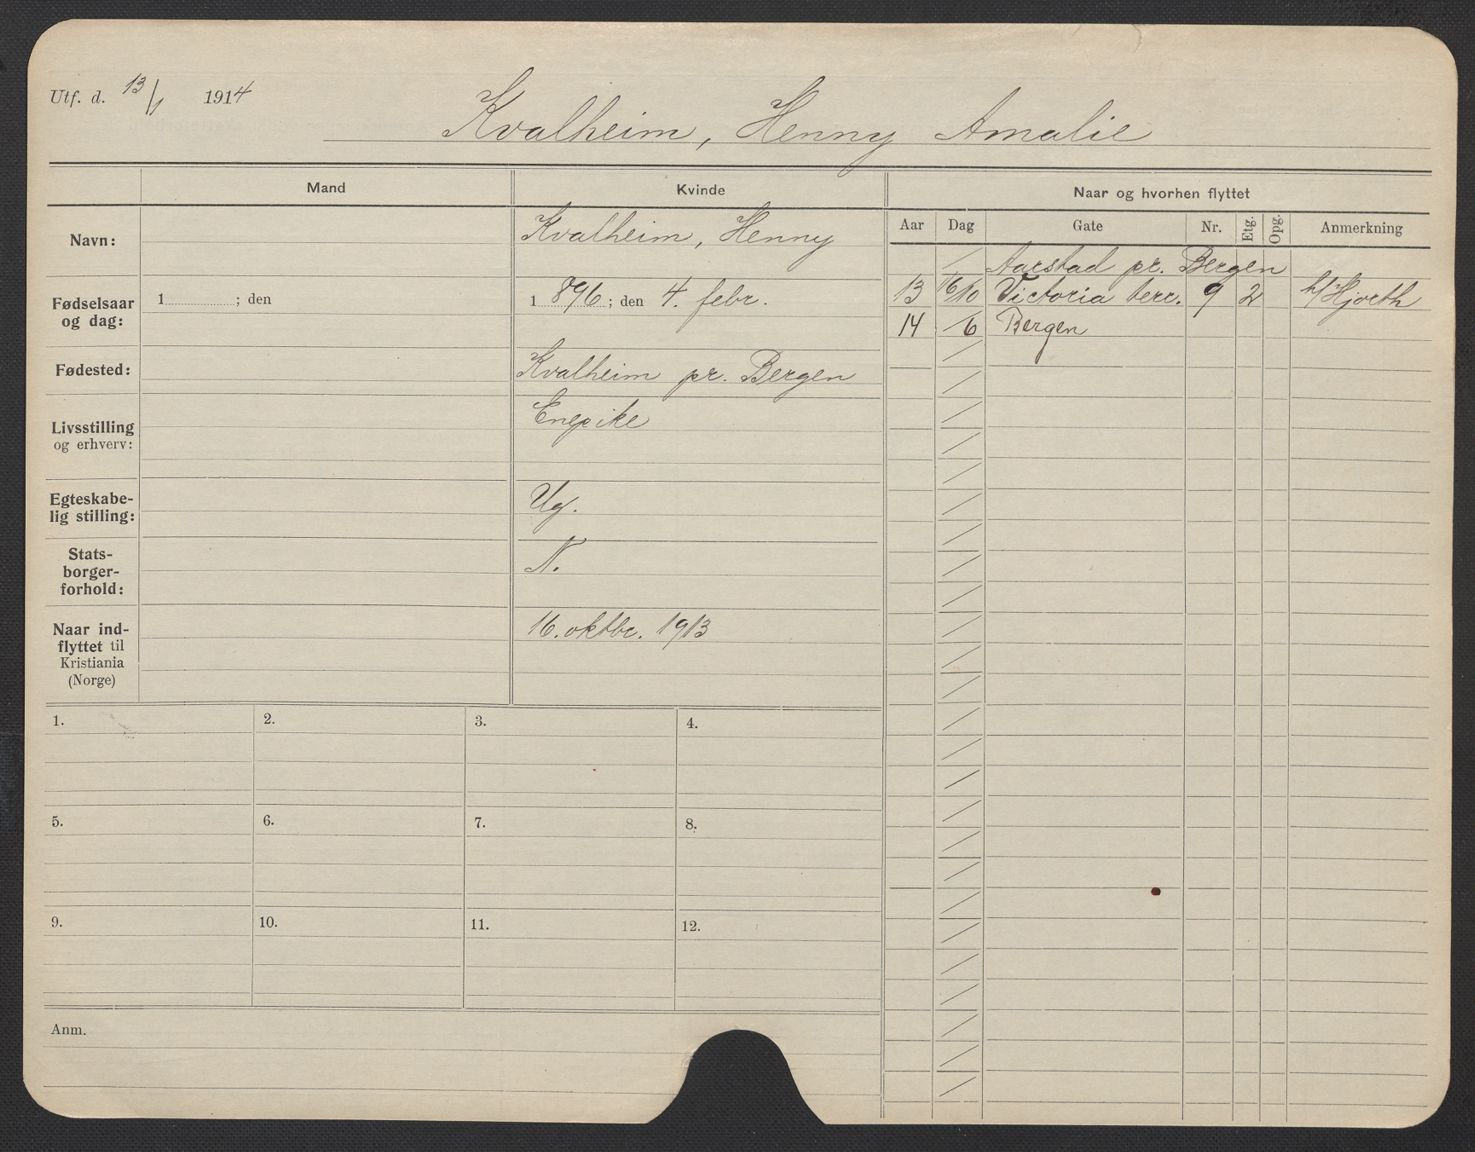 Utf. d. 13/1 1914
Kvalheim, Henny Amalie
Mand
Kvinde
Naar og hvorhen flyttet
Aar Dag Gate Nr. Etg. Opg. Anmerkning
Navn:
Kvalheim, Henny
Fødselsaar og dag:
1 ; den
1 896 ; den 4. febr.
Fødested:
Kvalheim pr. Bergen
Livsstilling og erhverv:
Enepike
Egteskabe-
lig stilling:
Ug.
Stats-
borger-
forhold:
N.
Naar ind-
flyttet til
Kristiania
(Norge)
16. oktbr. 1913
/ Aarstad pr. Bergen
13 16/10 Victoria terr. 9 2 h/Hjorth
14 /6 Bergen
1. 2. 3. 4.
5. 6. 7. 8.
9. 10. 11. 12.
Anm.